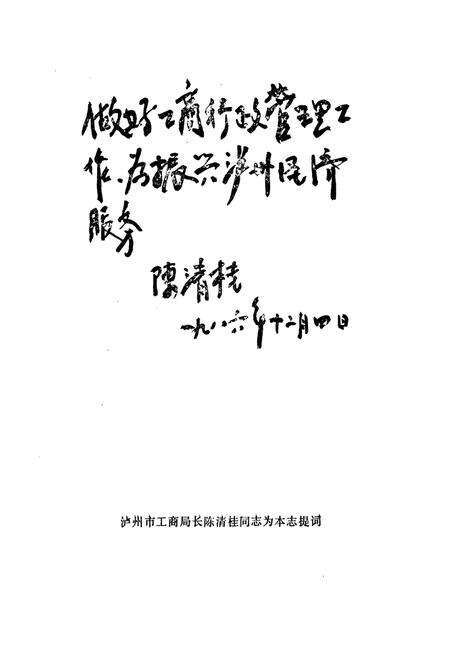 做好工商行政管理工
作、为振兴泸州经济
服务
陈清桂
一九八六年十二月四日
泸州市工商局长陈清桂同志为本志提词